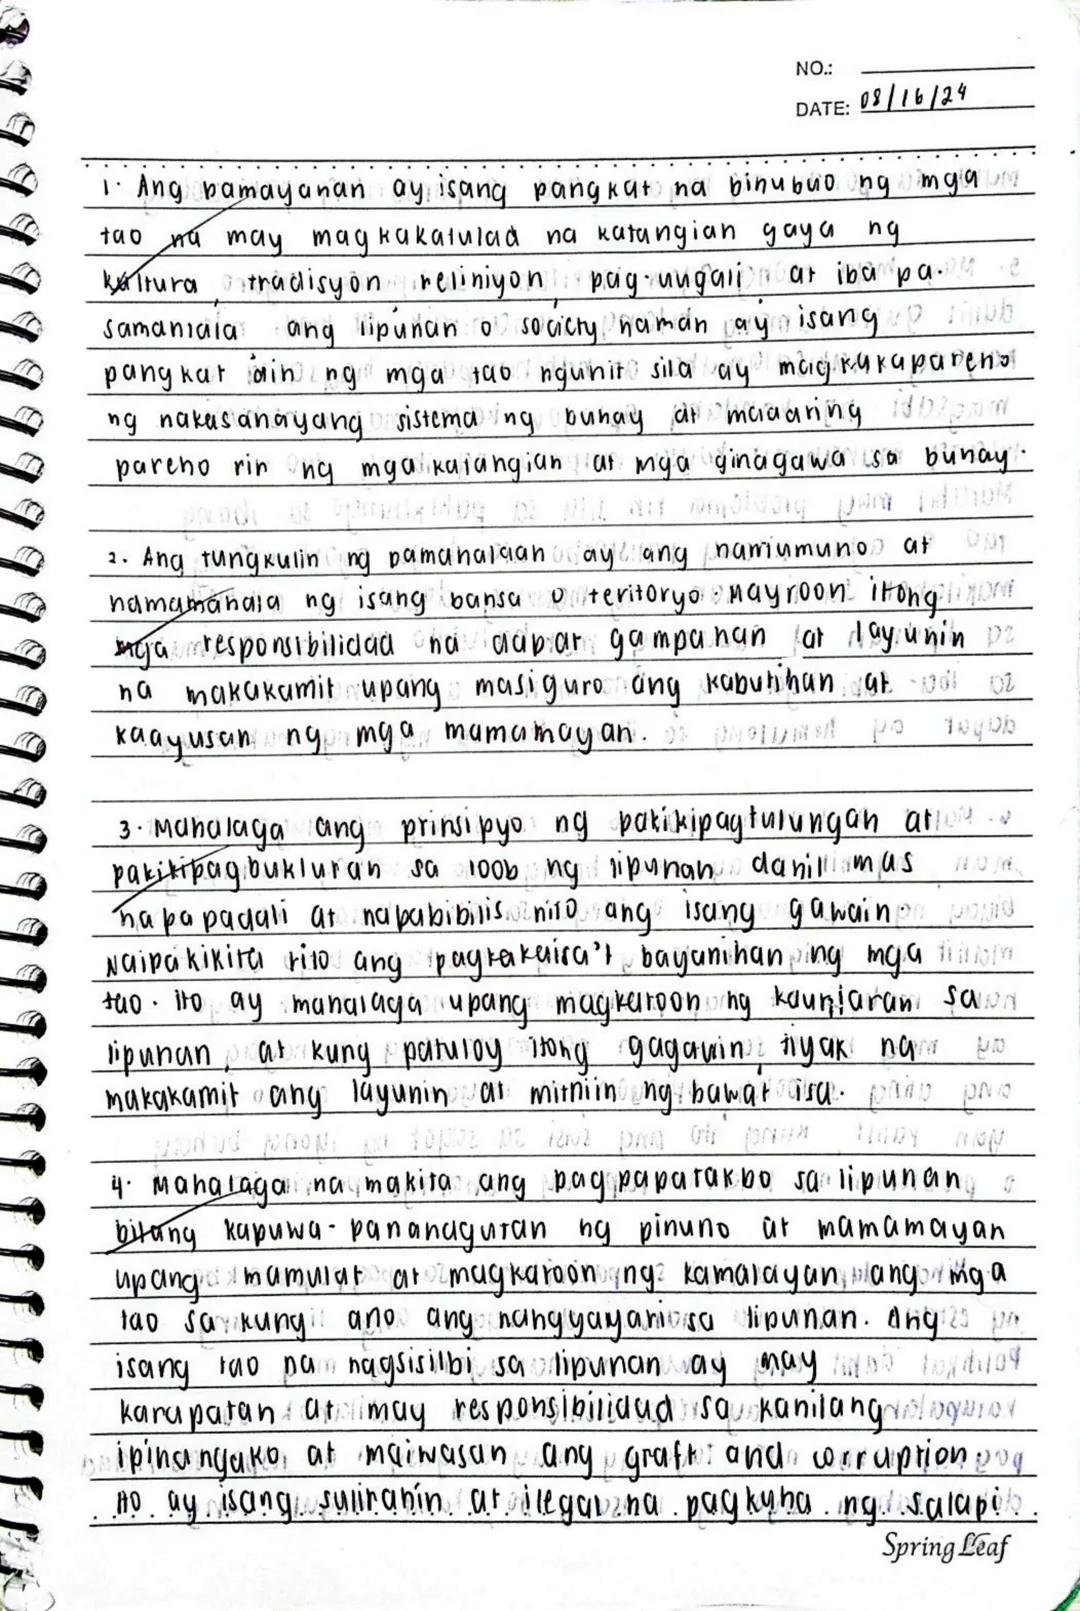 NO.:
DATE: 08/16/24
1. Ang pamayanan ay isang pangkat na binubuo ng mga
tao na may magkakatulad na katangian gaya ng
kultura, tradisyon, relihiyon, pag-uugali at iba pa.
samantala ang lipunan o society naman ay isang
pangkat din ng mga tao ngunit sila ay magkakapareho
ng nakasanayang sistema ng buhay at maaaring
pareho rin ng mga katangian at mga ginagawa sa buhay.
2. Ang tungkulin ng pamahalaan ay ang namumuno at
namamahala ng isang bansa o teritoryo. Mayroon itong
mga responsibilidad na dapat gampanan at layunin
na makakamit upang masiguro ang kabutihan at
kaayusan ng mga mamamayan.
3. Mahalaga ang prinsipyo ng pakikipagtulungan at
pakikipagbukluran sa loob ng lipunan dahil mas
napapadali at napabibilis nito ang isang gawain
Naipakikita rito ang pagkakaisa't bayanihan ng mga
tao. Ito ay mahalaga upang magkaroon ng kaunlaran sa
lipunan, at kung patuloy itong gagawin, tiyak na
makakamit ang layunin at mithiin ng bawat isa.
4. Mahalaga na makita ang pagpapatakbo sa lipunan
bilang kapuwa-pananagutan ng pinuno at mamamayan
upang mamulat at magkaroon ng kamalayan ang mga
tao sa kung ano ang nangyayari sa lipunan. Ang
isang tao na nagsisilbi sa lipunan ay may
karapatan at may responsibilidad sa kanilang
ipinangako at maiwasan ang graft and corruption
Ito ay isang suliranin at ilegal na pagkuha ng salapi.
Spring Leaf